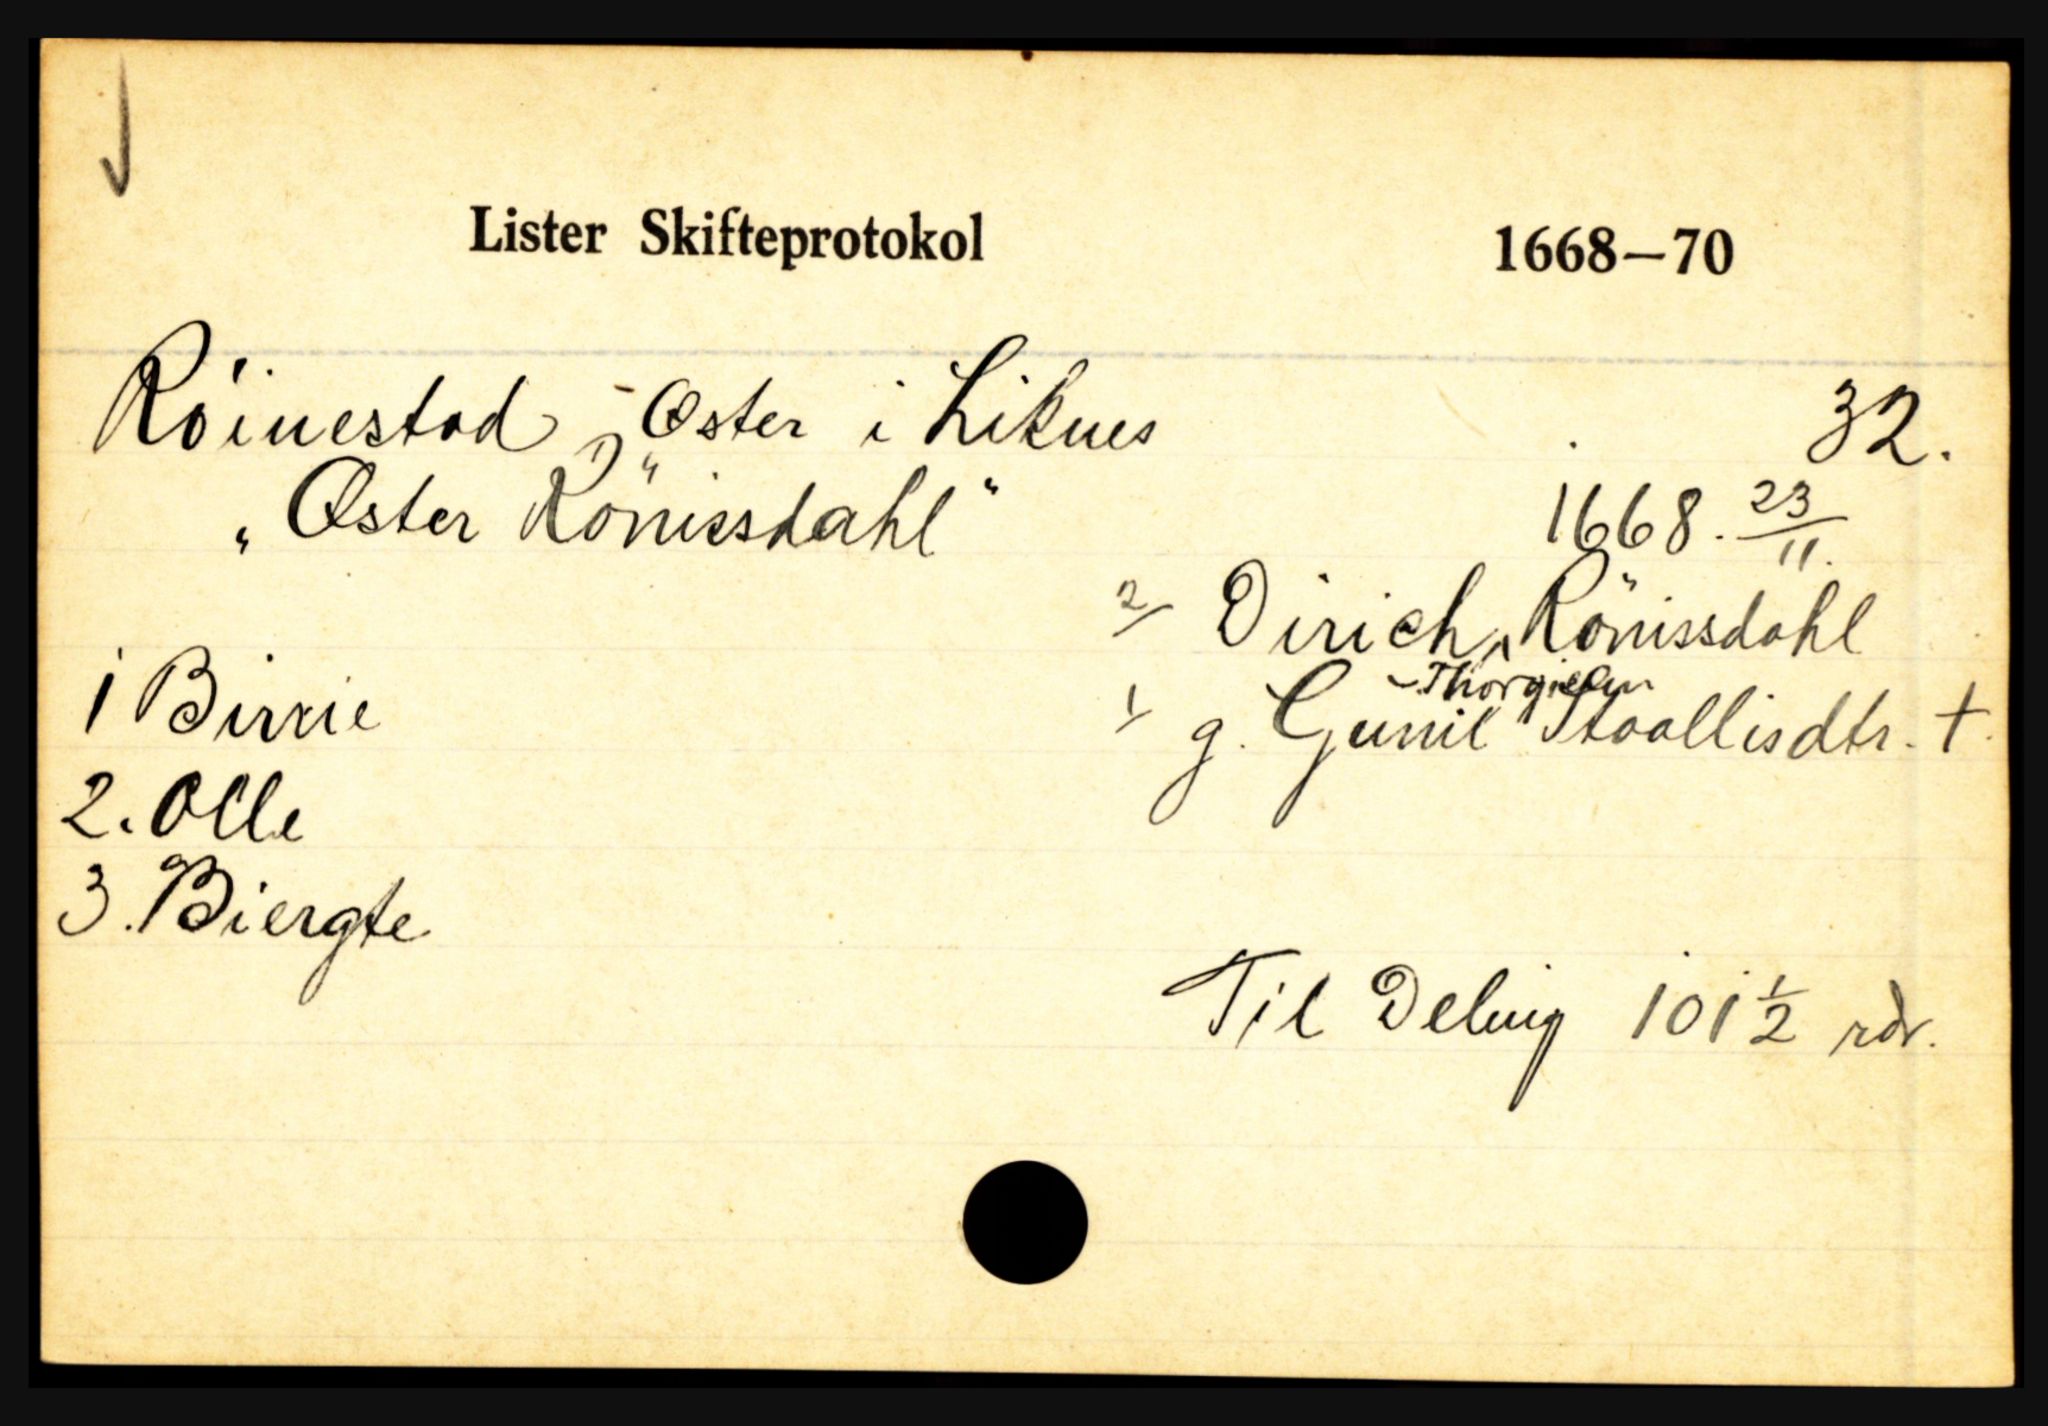 Lister Skifteprotokol 1668–70
Röinestad, Øster i Liknes 32.
„Øster Rönissdahl" 1668. 23/11.
2/ Dirich Rönissdahl
Thorgiels
1 Birrie 1/ g. Gunil Staallisdtr. †.
2. Olle
3. Biergte
Til Deling 101 1/2 rdr.